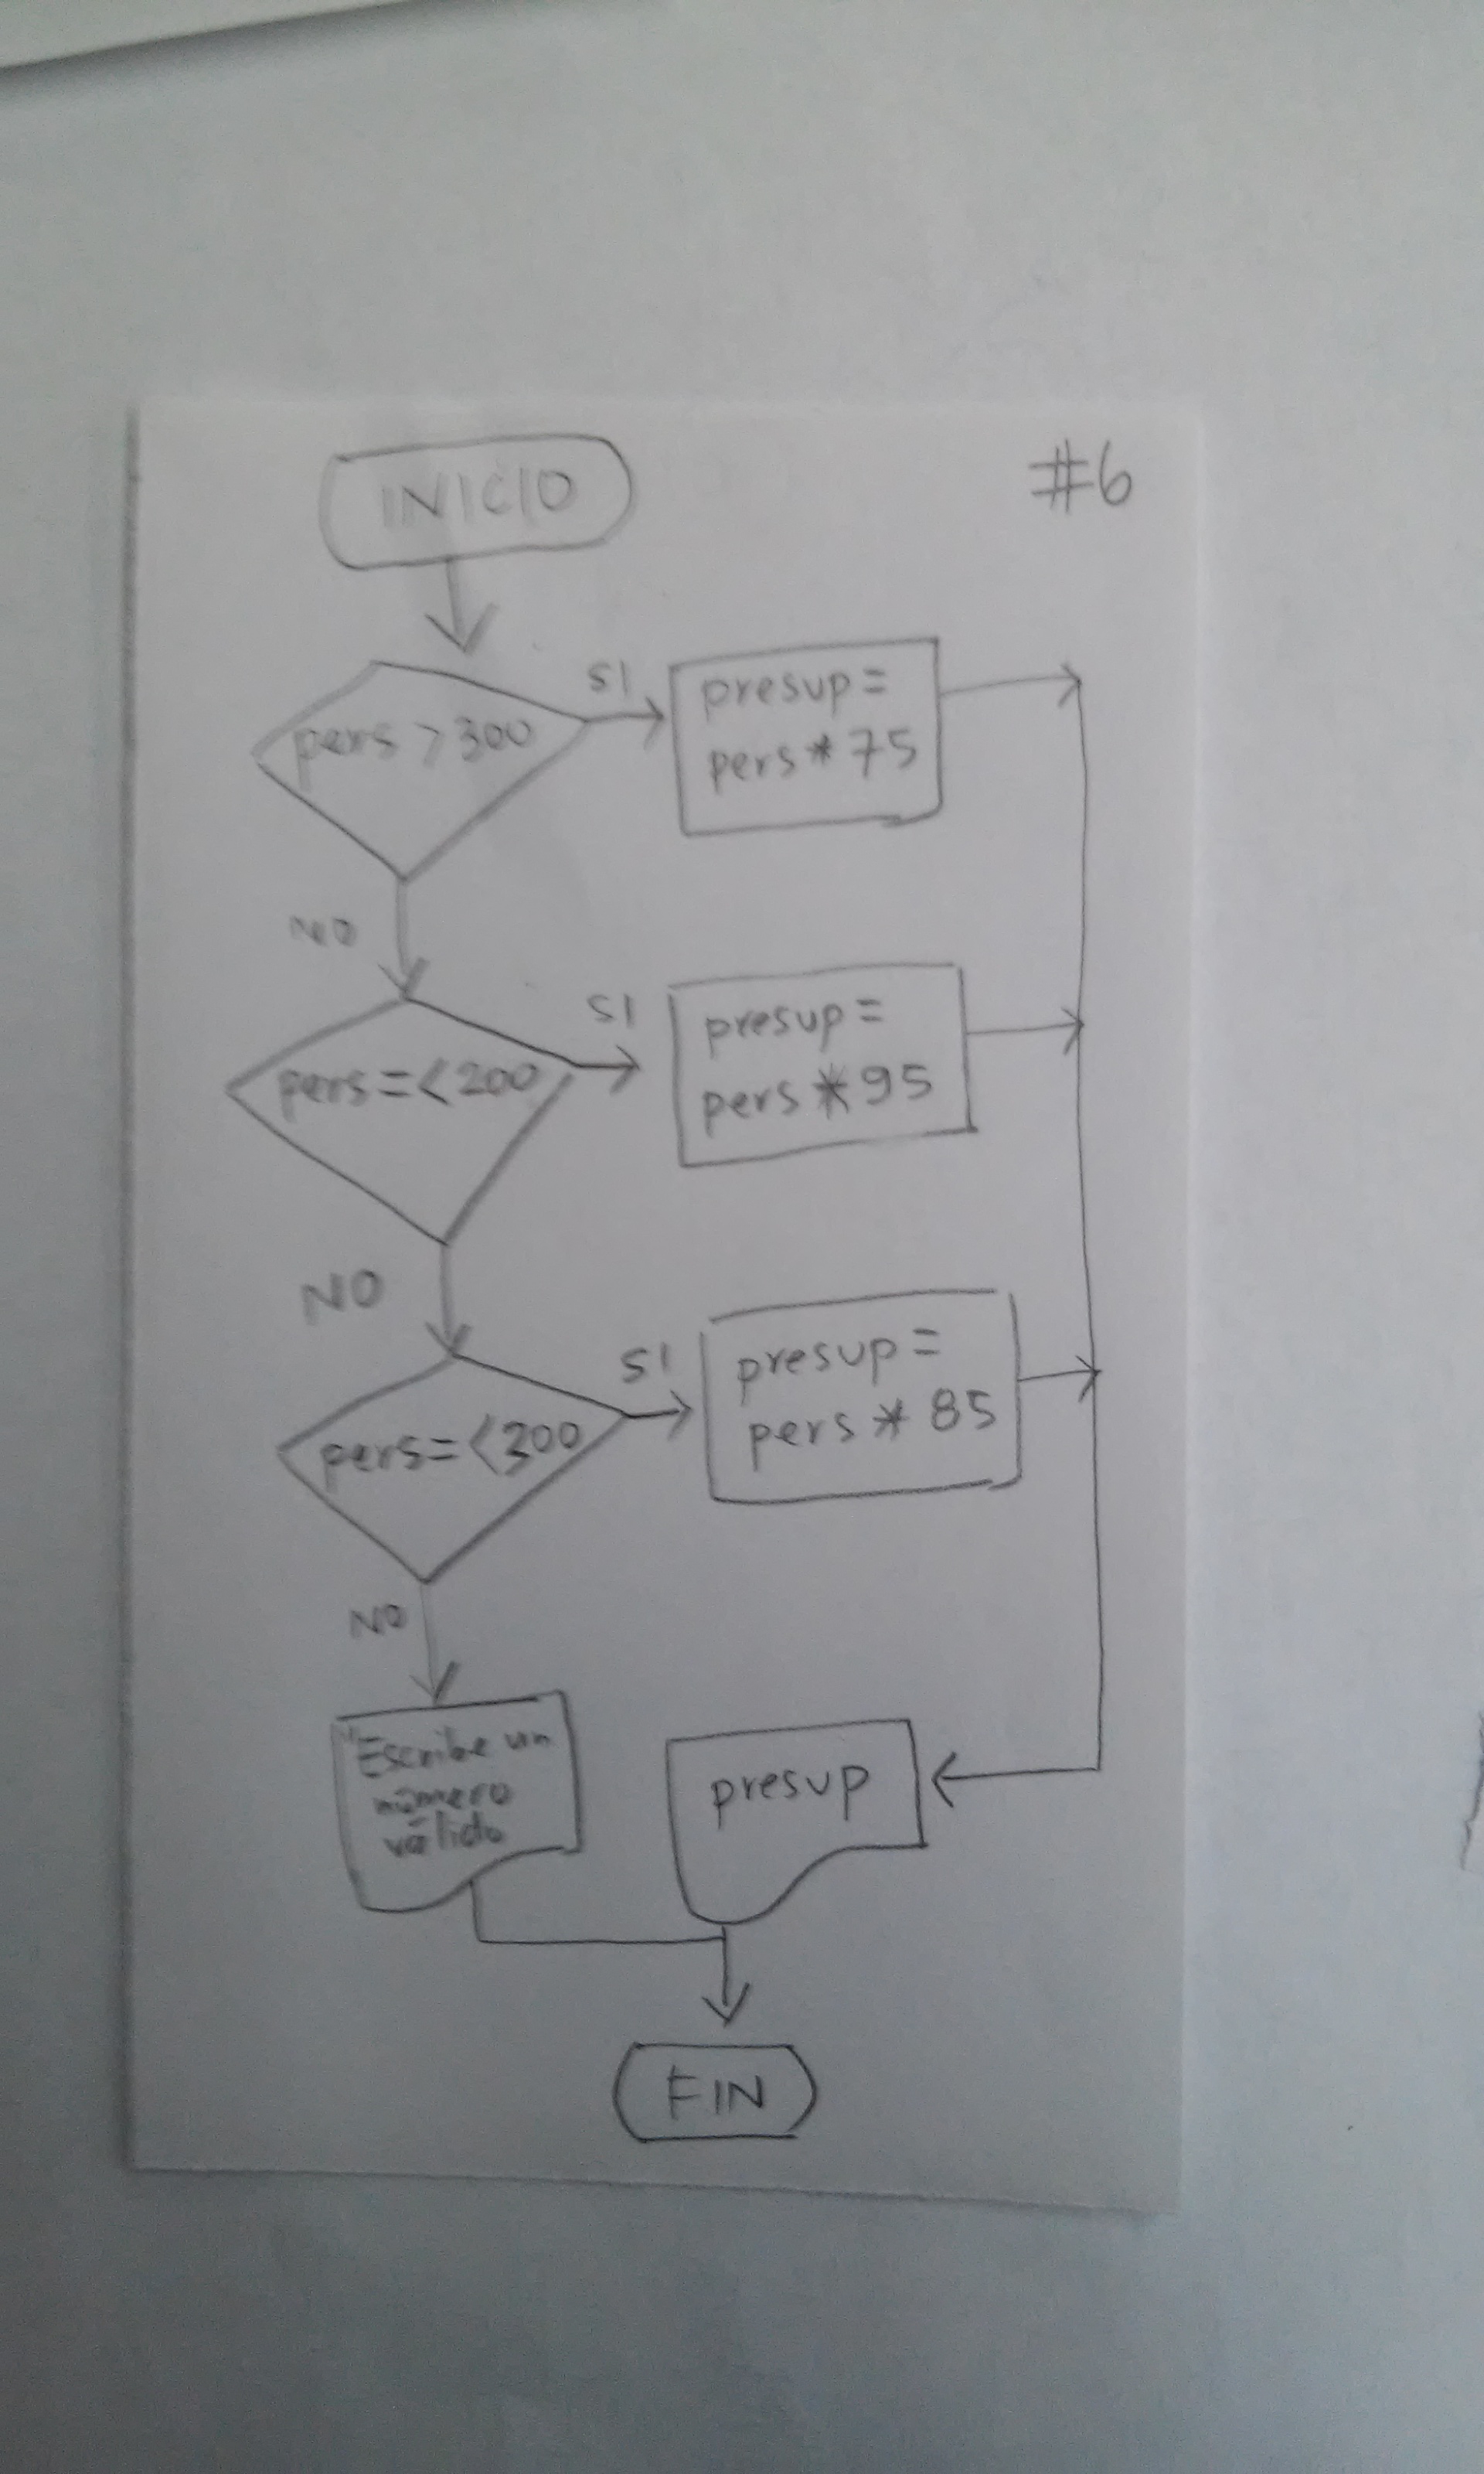 INICIO
#6
pers > 300
SI
presup =
pers * 75
NO
pers = < 200
SI
presup =
pers * 95
NO
pers = < 300
SI
presup =
pers * 85
NO
"Escribe un
número
válido
presup
FIN